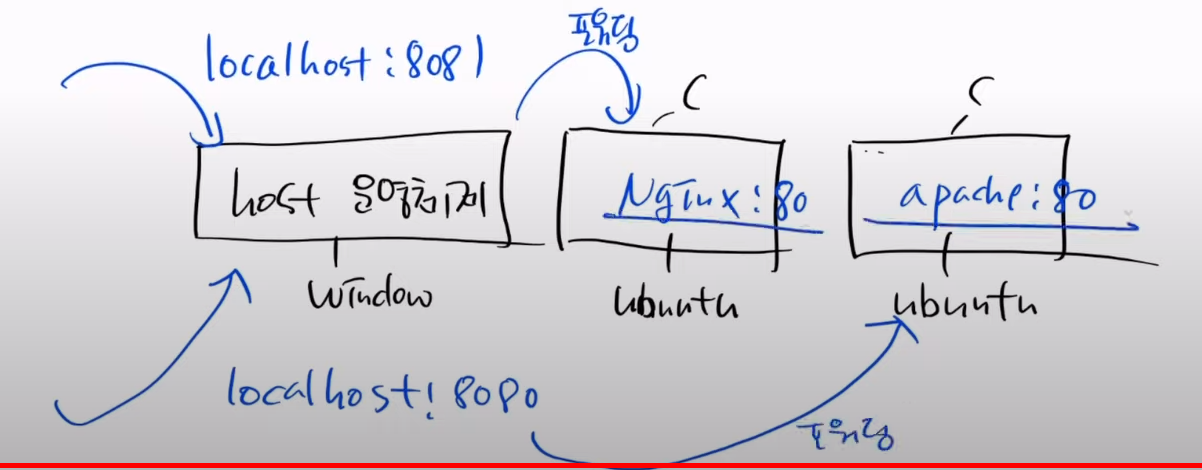 localhost:8081
포워딩
C
C
host 운영체제
Nginx:80
apache:80
window
ubuntu
ubuntu
localhost:8080
포워딩